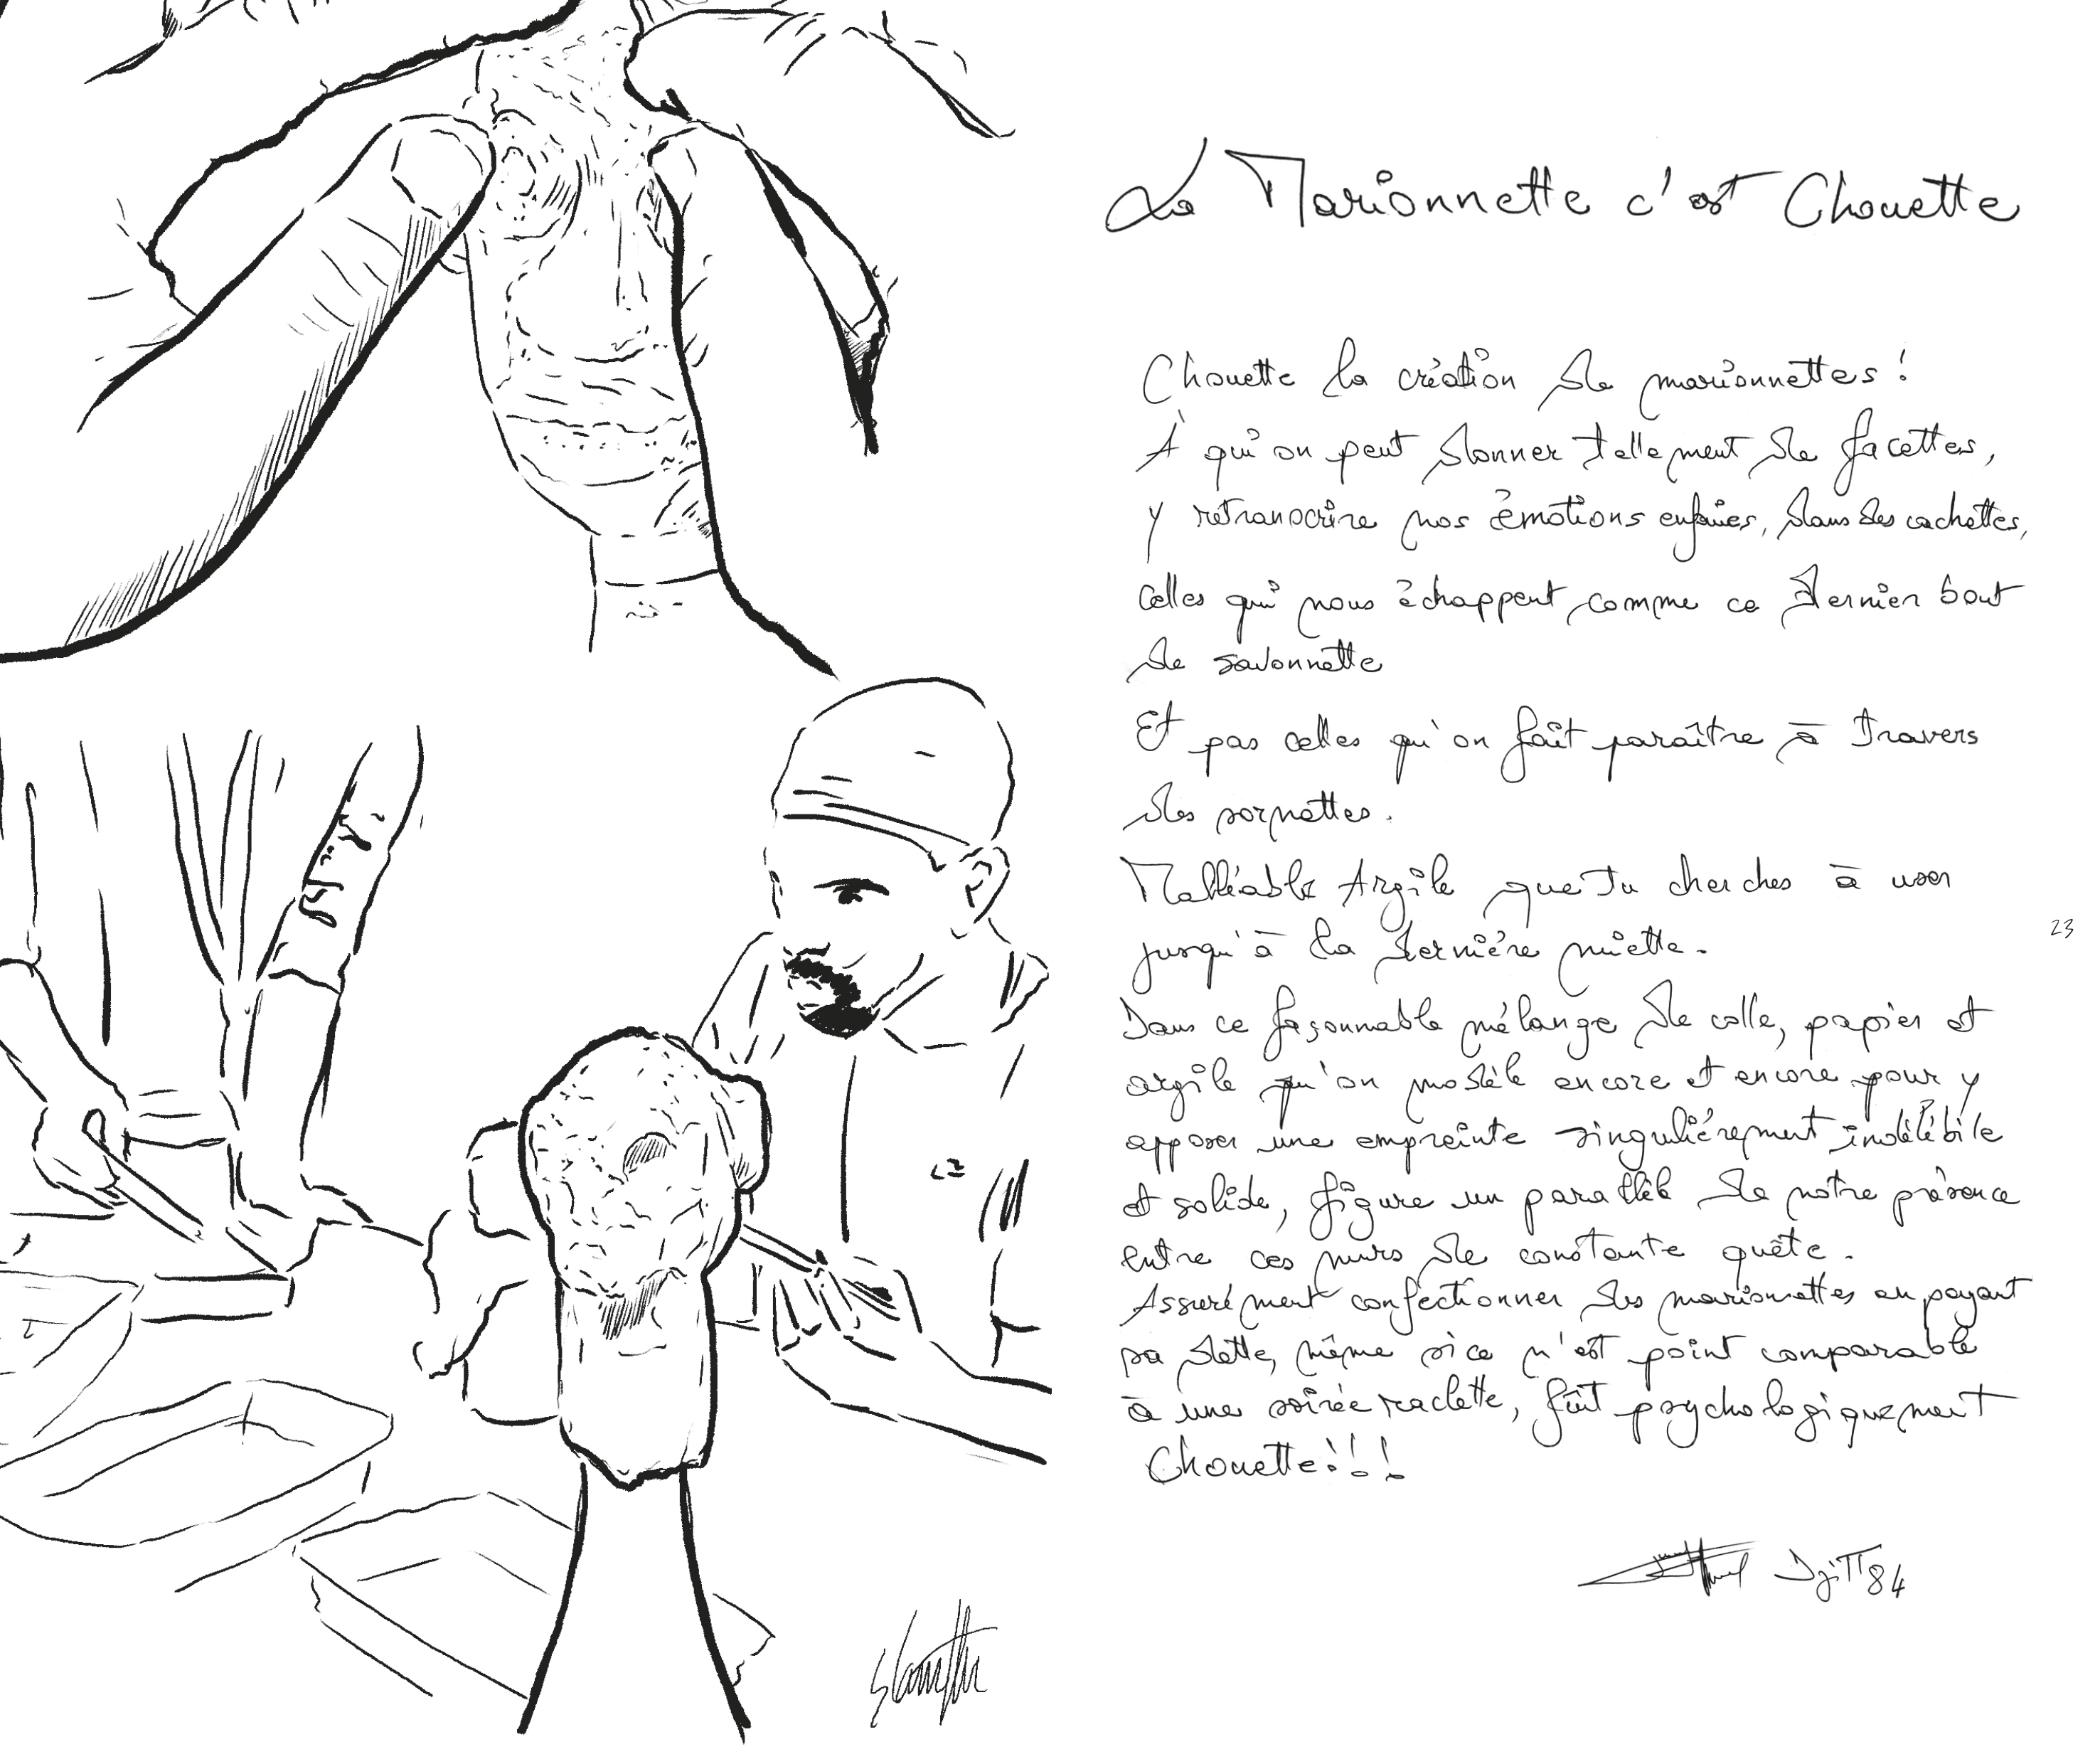 La Marionnette c'est Chouette
Chouette la création de marionnettes !
À qui on peut donner tellement de facettes,
y retranscrire nos émotions enfouies, dans des cachettes,
celles qui nous échappent comme ce dernier bout
de savonnette
Et pas celles qu'on fait paraître à travers
des sornettes.
Malléable Argile que tu cherches à user
jusqu'à la dernière miette.
Dans ce façonnable mélange de colle, papier et
argile qu'on modèle encore et encore pour y
apposer une empreinte singulièrement indélébile
et solide, figure un parallèle de notre présence
entre ces murs de constante quête.
Assurément confectionner des marionnettes en payant
sa dette, même si ce n'est point comparable
à une soirée raclette, fût psychologiquement
Chouette !!!
23
DjiTT84